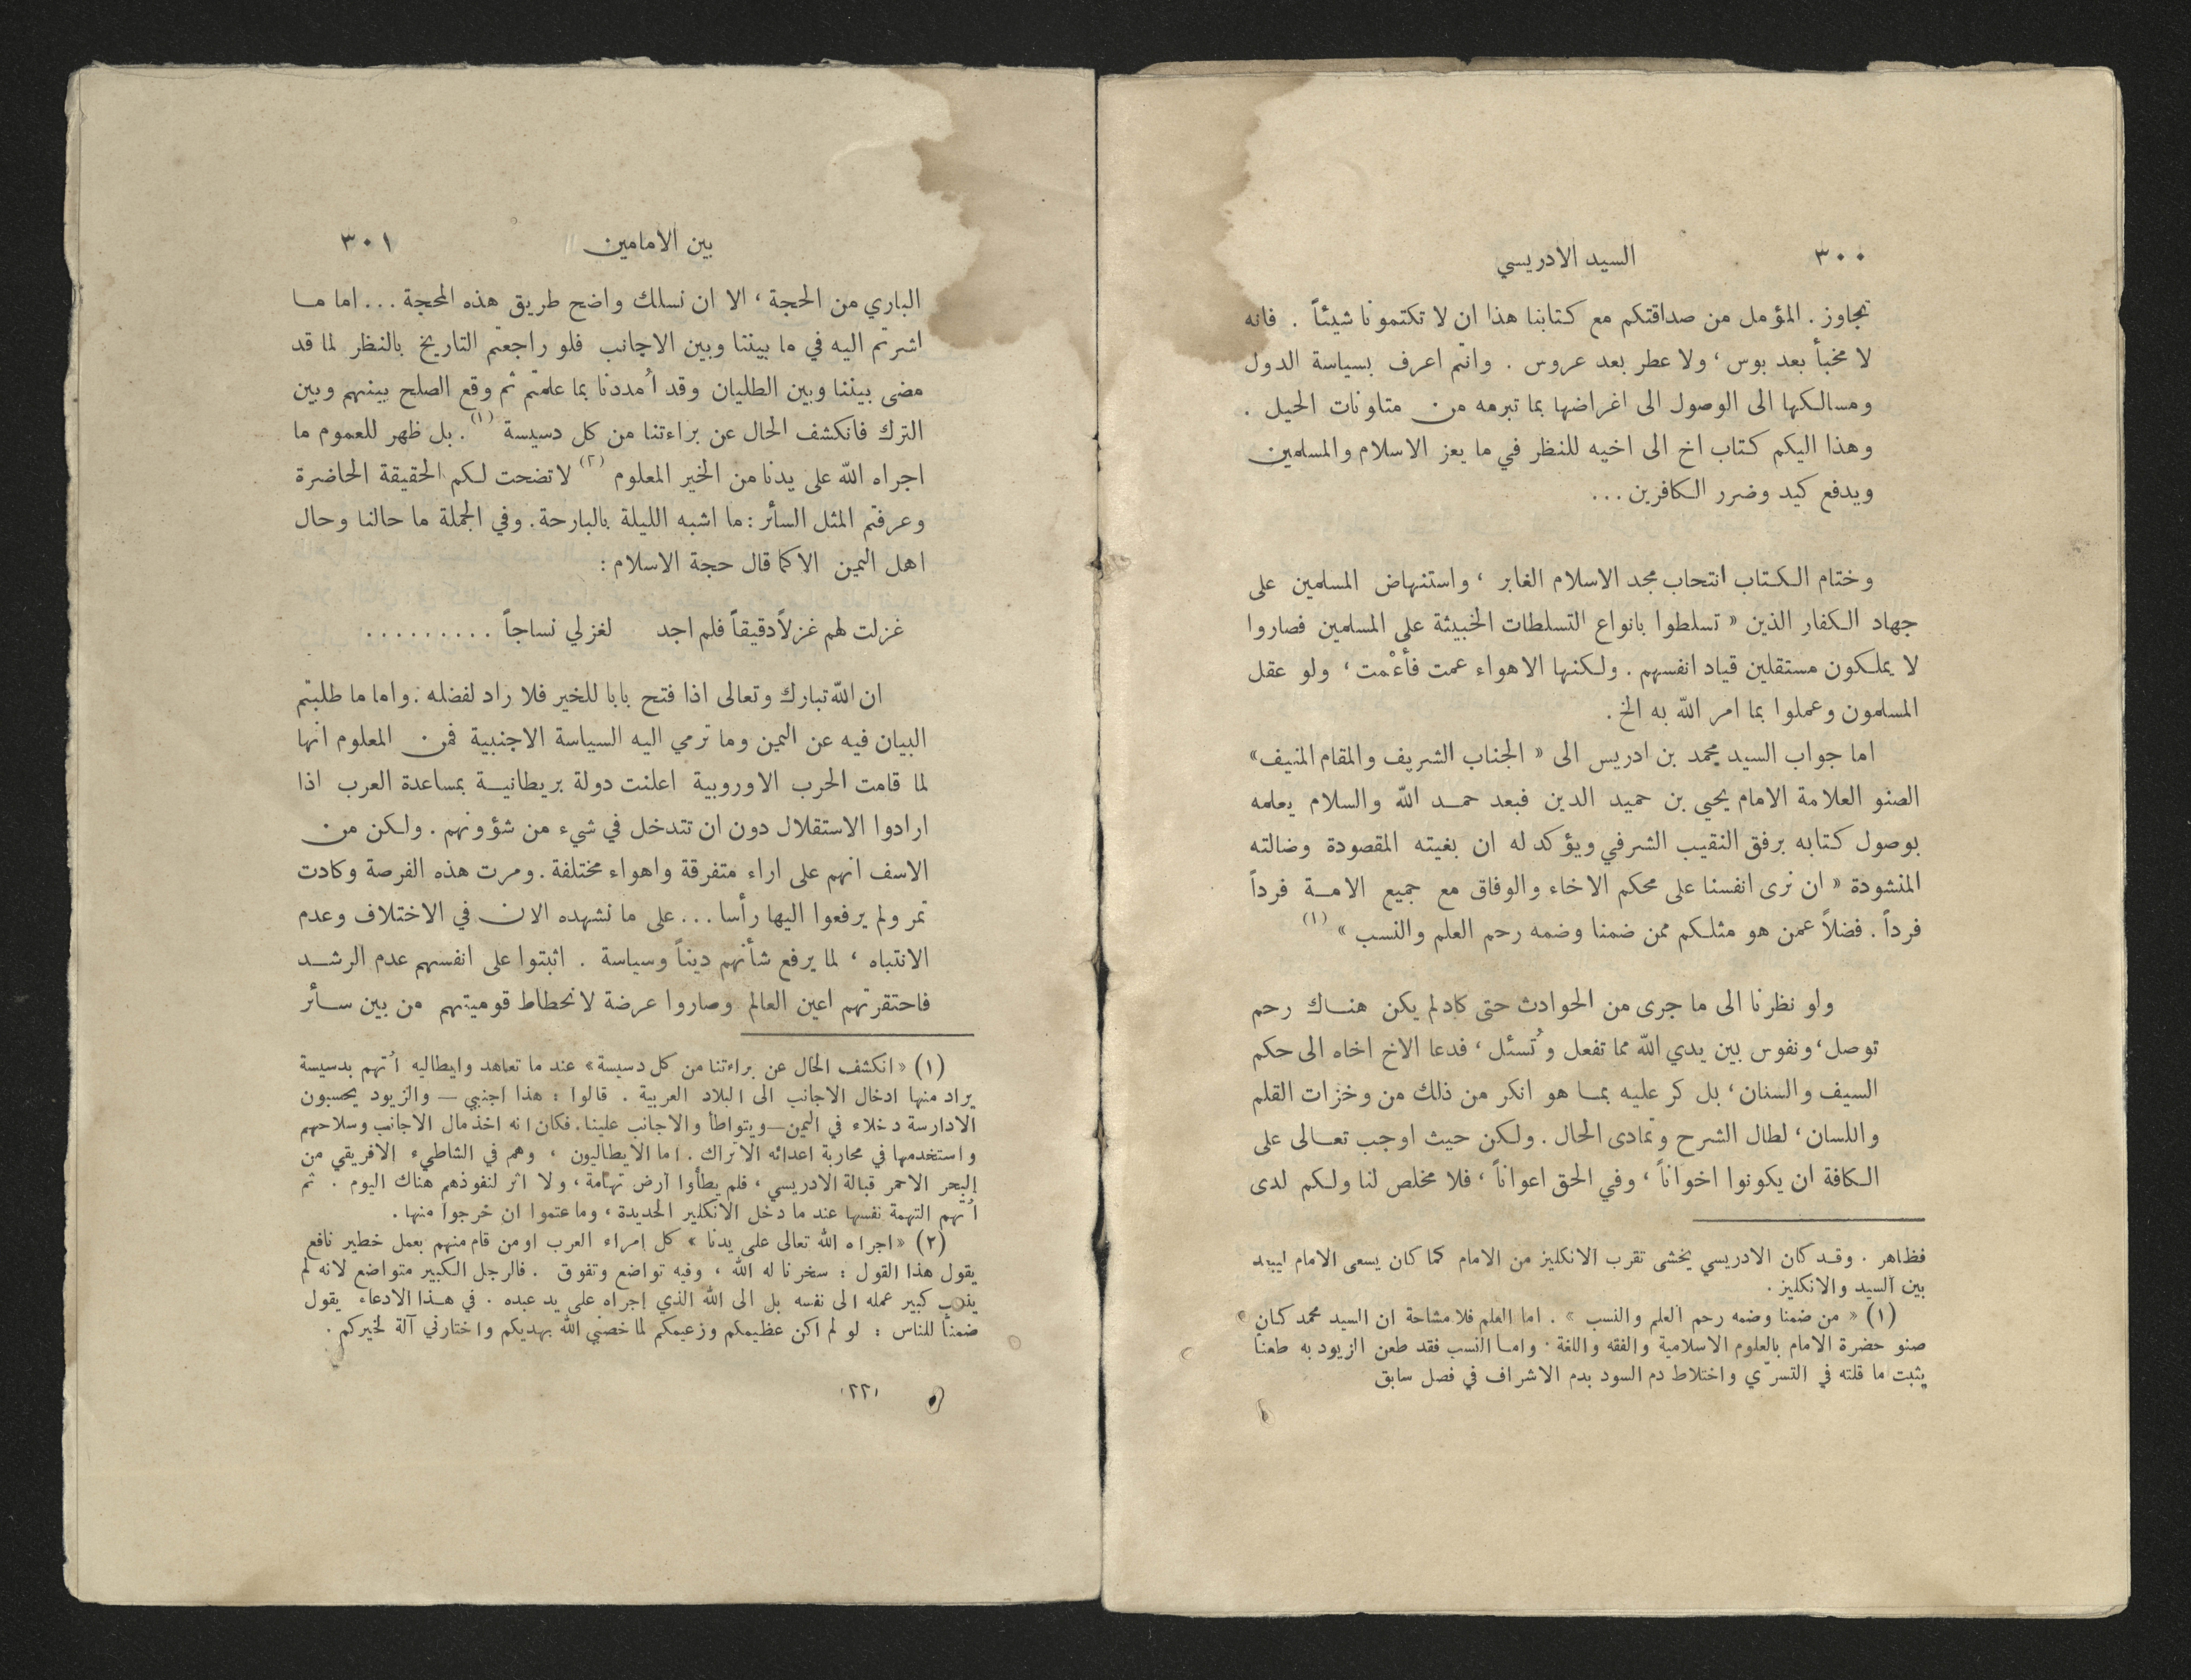 ٣٠٠
السيد الادريسي
تجاوز . المؤمل من صداقتكم مع كتابنا هذا ان لا تكتمونا شيئاً . فانه
لا مخبأ بعد بوس ، ولا عطر بعد عروس . وانتم اعرف بسياسة الدول
ومسالكها الى الوصول الى اغراضها بما تبرمه من متلونات الحيل .
وهذا اليكم كتاب اخ الى اخيه للنظر في ما يعز الاسلام والمسلمين
ويدفع كيد وضرر الكافرين ...
وختام الكتاب انتحاب مجد الاسلام الغابر ، واستنهاض المسلمين على
جهاد الكفار الذين « تسلطوا بانواع التسلطات الخبيثة على المسلمين فصاروا
لا يملكون مستقلين قياد انفسهم . ولكنها الاهواء عمت فأعْمت ، ولو عقل
المسلمون وعملوا بما امر الله به الخ .
اما جواب السيد محمد بن ادريس الى « الجناب الشريف والمقام المنيف »
الصنو العلامة الامام يحيى بن حميد الدين فبعد حمد الله والسلام يعلمه
بوصول كتابه برفق النقيب الشرفي ويؤكد له ان بغيته المقصودة وضالته
المنشودة « ان نرى انفسنا على محكم الاخاء والوفاق مع جميع الامة فرداً
فرداً . فضلاً عمن هو مثلكم ممن ضمنا وضمه رحم العلم والنسب » (١)
ولو نظرنا الى ما جرى من الحوادث حتى كاد لم يكن هناك رحم
توصل ، ونفوس بين يدي الله مما تفعل وتُسئل ، فدعا الاخ اخاه الى حكم
السيف والسنان ، بل كر عليه بما هو انكر من ذلك من وخزات القلم
واللسان ، لطال الشرح وتمادى الحال . ولكن حيث اوجب تعالى على
الكافة ان يكونوا اخواناً ، وفي الحق اعواناً ، فلا مخلص لنا ولكم لدى
فظاهر . وقد كان الادريسي يخشى تقرب الانكليز من الامام كما كان يسعى الامام ليبعد
بين السيد والانكليز .
(١) « من ضمنا وضمه رحم العلم والنسب » . اما العلم فلا مشاحة ان السيد محمد كان
صنو حضرة الامام بالعلوم الاسلامية والفقه واللغة . واما النسب فقد طعن الزيود به طعناً
يثبت ما قلته في التسرّي واختلاط دم السود بدم الاشراف في فصل سابق
بين الامامين
٣٠١
الباري من الحجة ، الا ان نسلك واضح طريق هذه المحجة ... اما ما
اشرتم اليه في ما بيننا وبين الاجانب فلو راجعتم التاريخ بالنظر لما قد
مضى بيننا وبين الطليان وقد اُمددنا بما علمتم ثم وقع الصلح بينهم وبين
الترك فانكشف الحال عن براءتنا من كل دسيسة (١) . بل ظهر للعموم ما
اجراه الله على يدنا من الخير المعلوم (٢) لاتضحت لكم الحقيقة الحاضرة
وعرفتم المثل السائر : ما اشبه الليلة بالبارحة . وفي الجملة ما حالنا وحال
اهل اليمين الا كما قال حجة الاسلام :
غزلت لهم غزلاً دقيقاً فلم اجد لغزلي نساجاً .........
ان الله تبارك وتعالى اذا فتح بابا للخير فلا راد لفضله . واما ما طلبتم
البيان فيه عن اليمين وما ترمي اليه السياسة الاجنبية فمن المعلوم انها
لما قامت الحرب الاوروبية اعلنت دولة بريطانية بمساعدة العرب اذا
ارادوا الاستقلال دون ان تتدخل في شيء من شؤونهم . ولكن من
الاسف انهم على اراء متفرقة واهواء مختلفة . ومرت هذه الفرصة وكادت
تمر ولم يرفعوا اليها رأسا ... على ما نشهده الان في الاختلاف وعدم
الانتباه ، لما يرفع شأنهم ديناً وسياسة . اثبتوا على انفسهم عدم الرشد
فاحتقرتهم اعين العالم وصاروا عرضة لانحطاط قوميتهم من بين سائر
(١) « انكشف الحال عن براءتنا من كل دسيسة » عند ما تعاهد وايطاليه اُتهم بدسيسة
يراد منها ادخال الاجانب الى البلاد العربية . قالوا : هذا اجنبي — والزيود يحسبون
الادارسة دخلاء في اليمن — ويتواطأ والاجانب علينا . فكان انه اخذ مال الاجانب وسلاحهم
واستخدمها في محاربة اعدائه الاتراك . اما الايطاليون ، وهم في الشاطيء الافريقي من
البحر الاحمر قبالة الادريسي ، فلم يطأوا ارض تهامة ، ولا اثر لنفوذهم هناك اليوم . ثم
اُتهم التهمة نفسها عند ما دخل الانكليز الحديدة ، وما عتموا ان خرجوا منها .
(٢) « اجراه الله تعالى على يدنا » كل امراء العرب او من قام منهم بعمل خطير نافع
يقول هذا القول : سخرنا له الله ، وفيه تواضع وتفوق . فالرجل الكبير متواضع لانه لم
ينسب كبير عمله الى نفسه بل الى الله الذي اجراه على يد عبده . في هذا الادعاء يقول
ضمناً للناس : لو لم اكن عظيمكم وزعيمكم لما خصني الله بهديكم واختارني آلة لخيركم .
٢٢